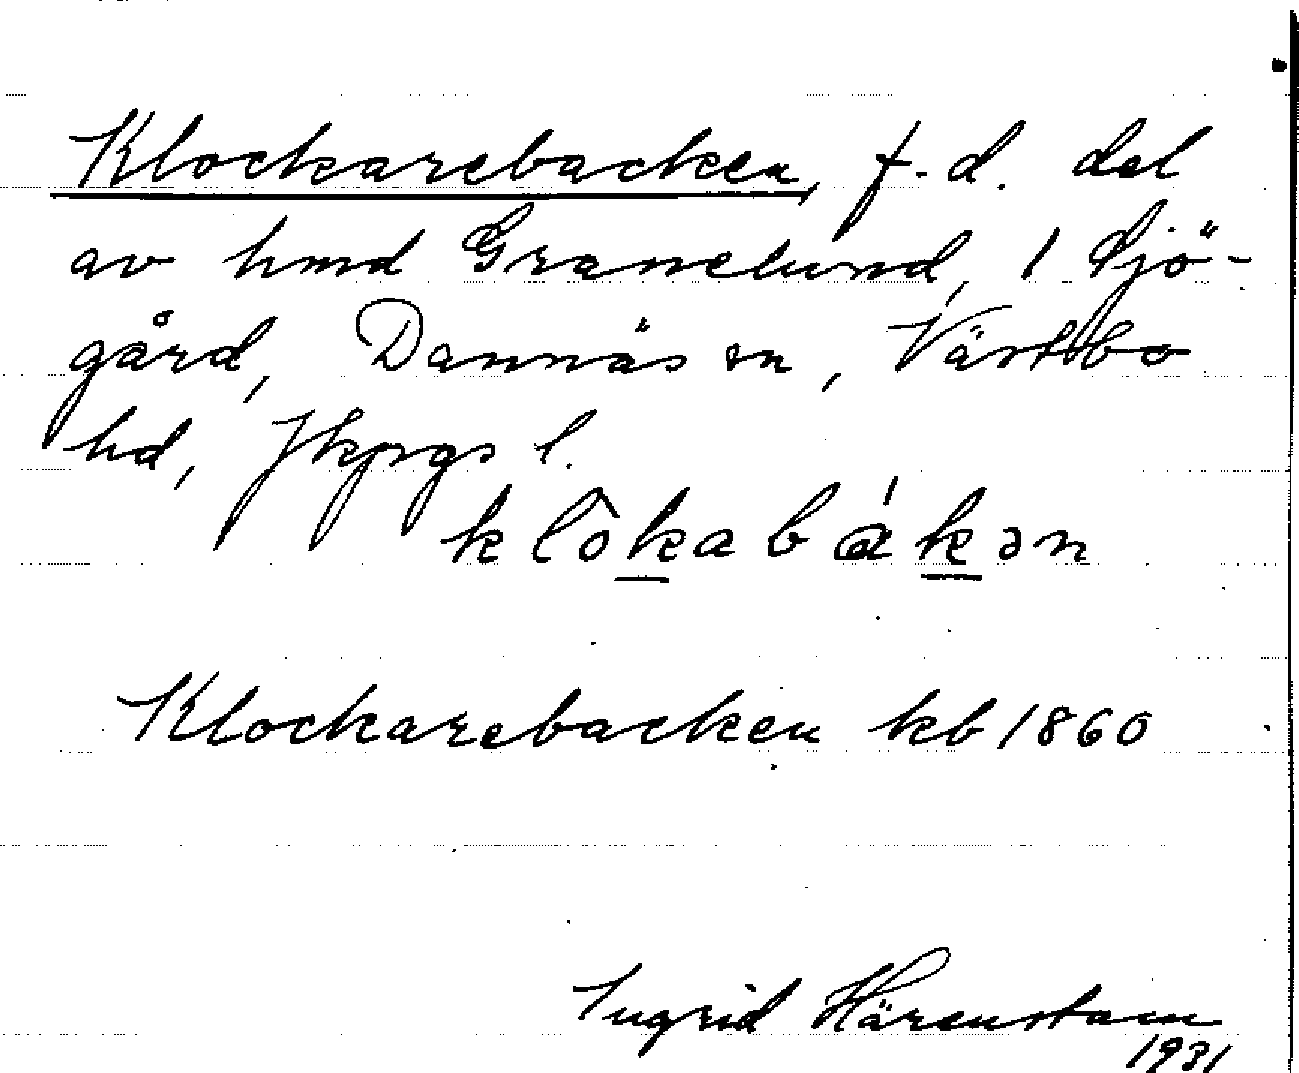 Klockarebacken, f.d. del
av hmd Granelund, 1 Sjö-
gård, Dannäs sn, Västbo
hd, Jkpgs l.
klòkabákən
Klockarebacken kb 1860
Ingrid Härenstam
1931